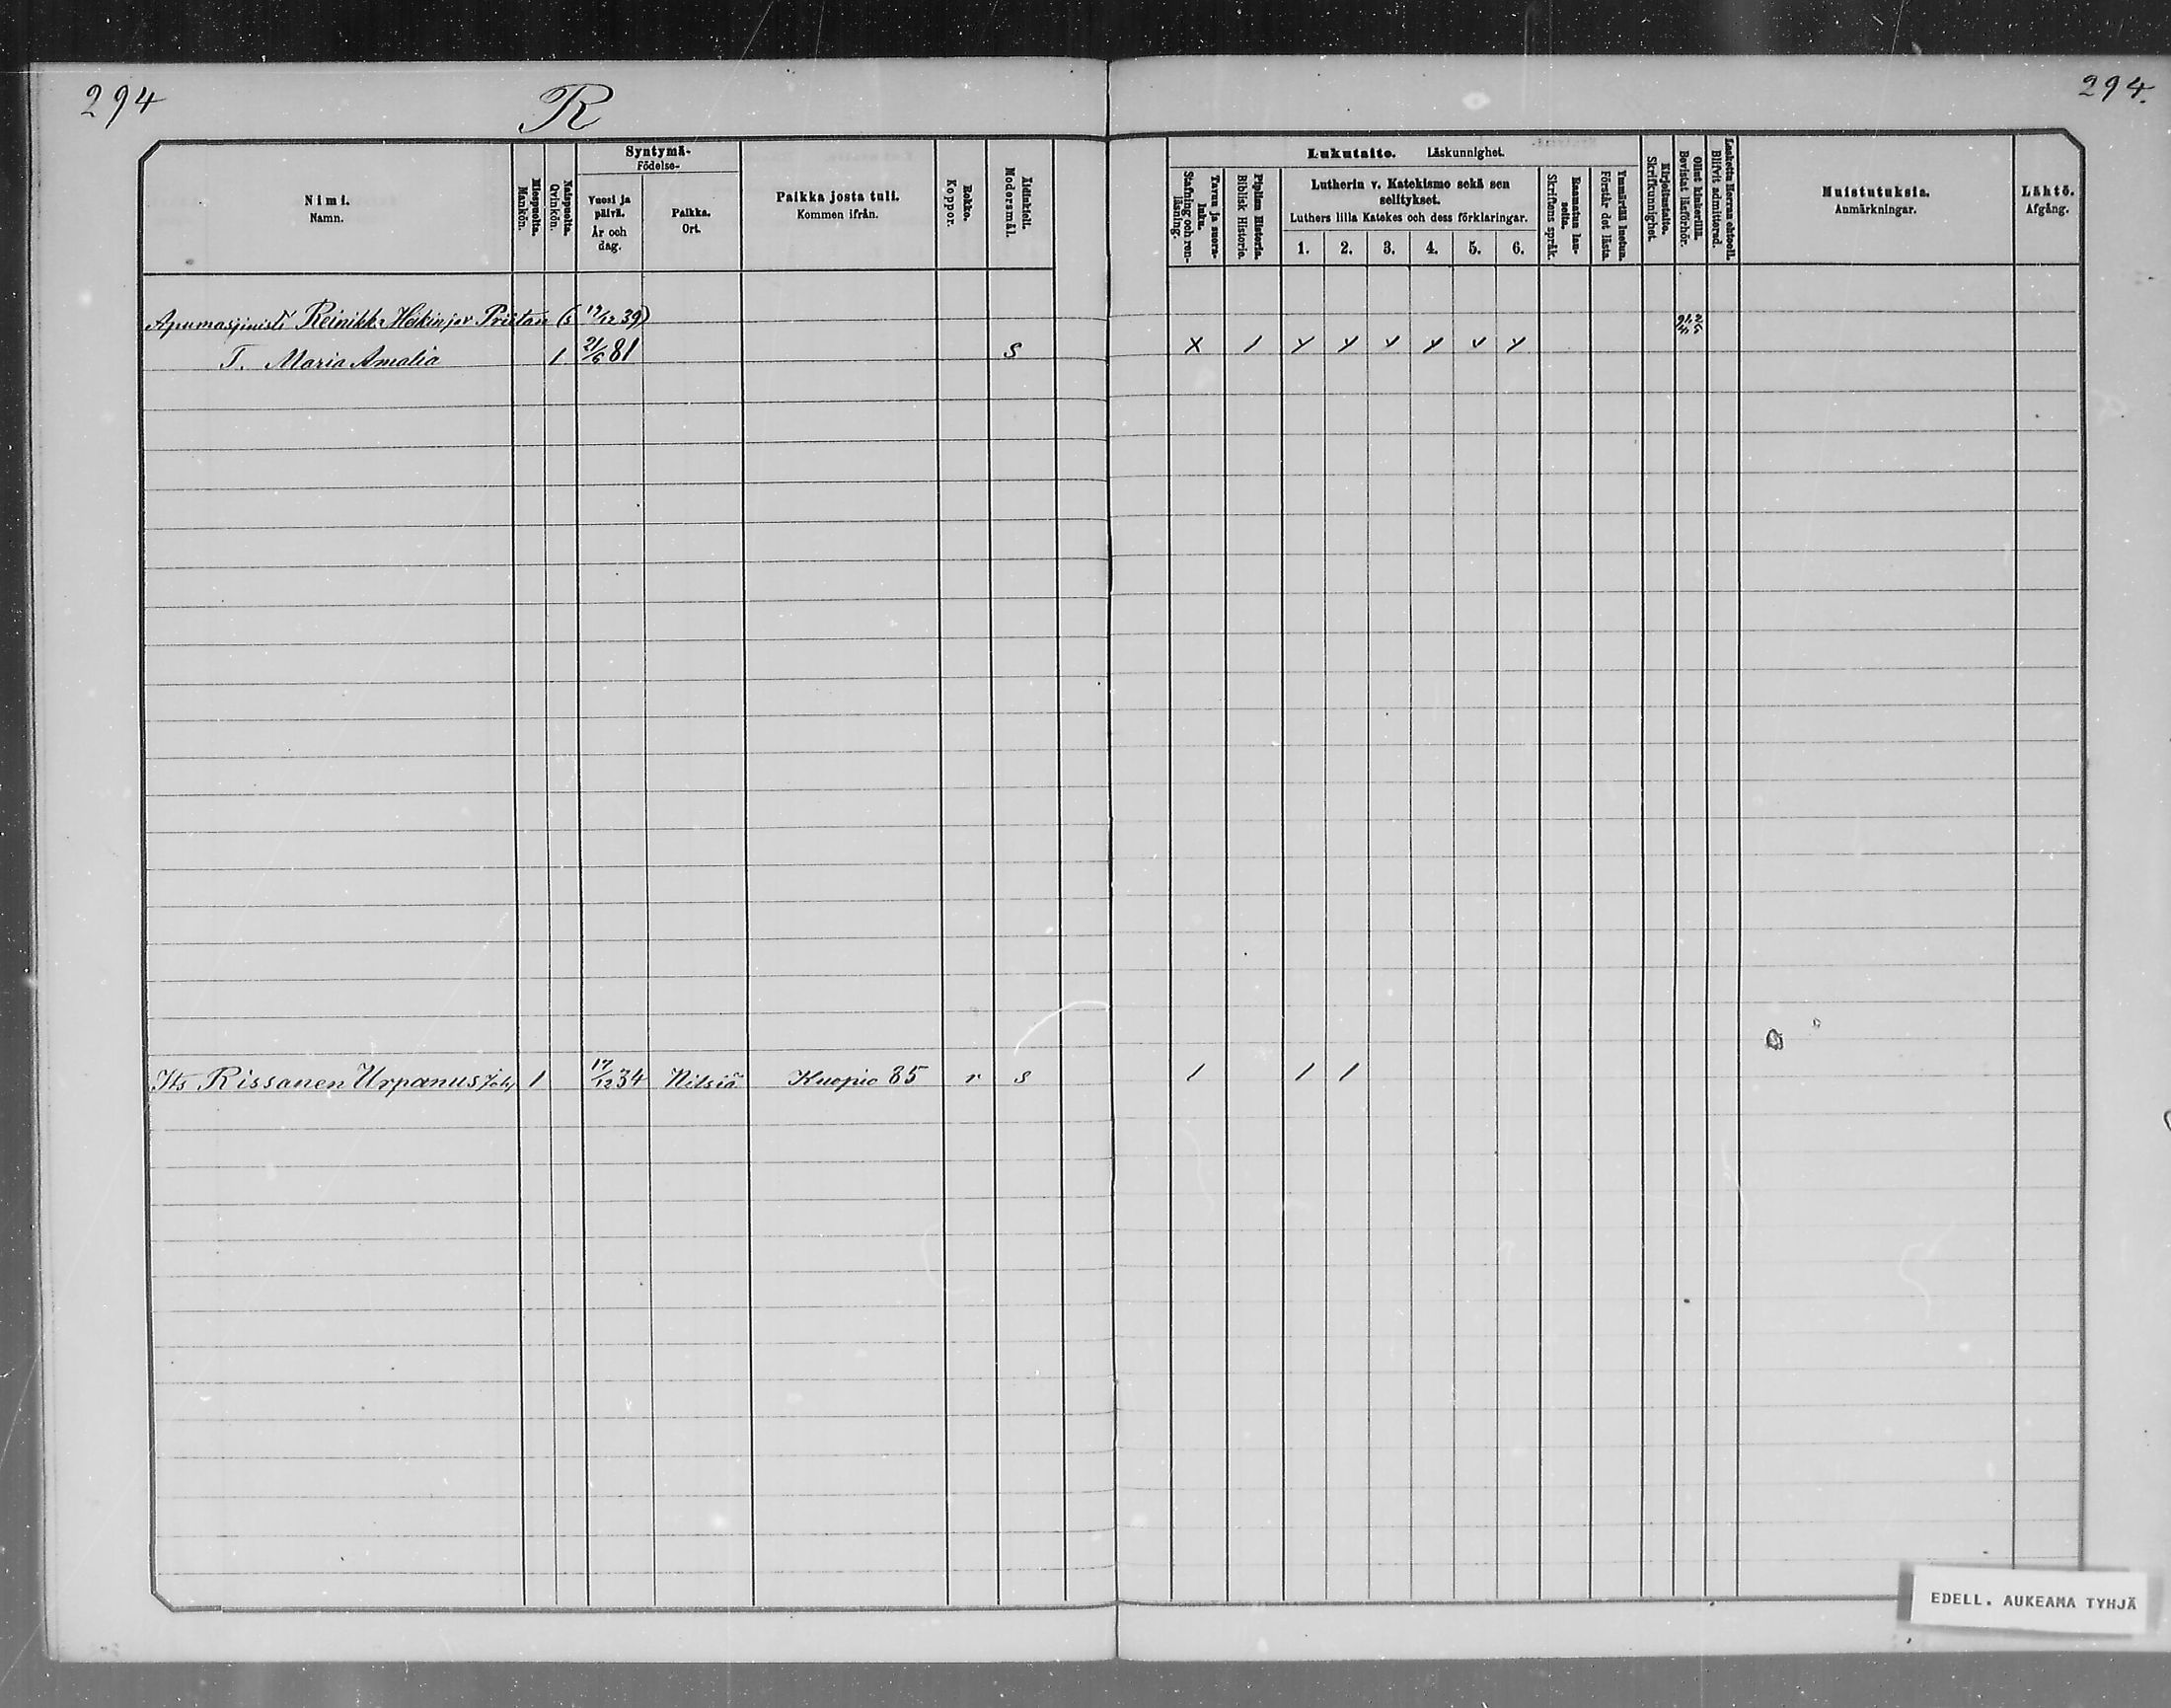 294
R
294.
Nimi.
Namn.
Miespuolta.
Mankön.
Naispuolta.
Qvinkön.
Syntymä-
Födelse-
Vuosi ja päivä.
År och dag.
Paikka.
Ort.
Paikka josta tuli.
Kommen ifrån.
Rokko.
Koppor.
Äidinkieli.
Modersmål.
Lukutaito. Läskunnighet.
Tavuu ja suora-luku.
Stafning och ren-läsning.
Piplian Historia.
Biblisk Historie.
Lutherin v. Katekismo sekä sen
selitykset.
Luthers lilla Katekes och dess förklaringar.
1. 2. 3. 4. 5. 6.
Raamatun lau-seita.
Skriftens språk.
Ymmärtää luetun.
Förstår det lästa.
Kirjoitustaito.
Skrifkunnighet.
Ollut kinkerillä.
Bevistat läsförhör.
Laskettu Herran ehtooll.
Blifvit admitterad.
Muistutuksia.
Anmärkningar.
Lähtö.
Afgång.
Reinikka (s 19/12 39)
T. Maria Amalia 1. 21/6 81 S X 1 Y Y Y Y Y Y
Its Rissanen Urpanus Joh 1 17/12 34 Nilsiä Kuopio 85 r s 1 1 1
EDELL. AUKEAMA TYHJÄ